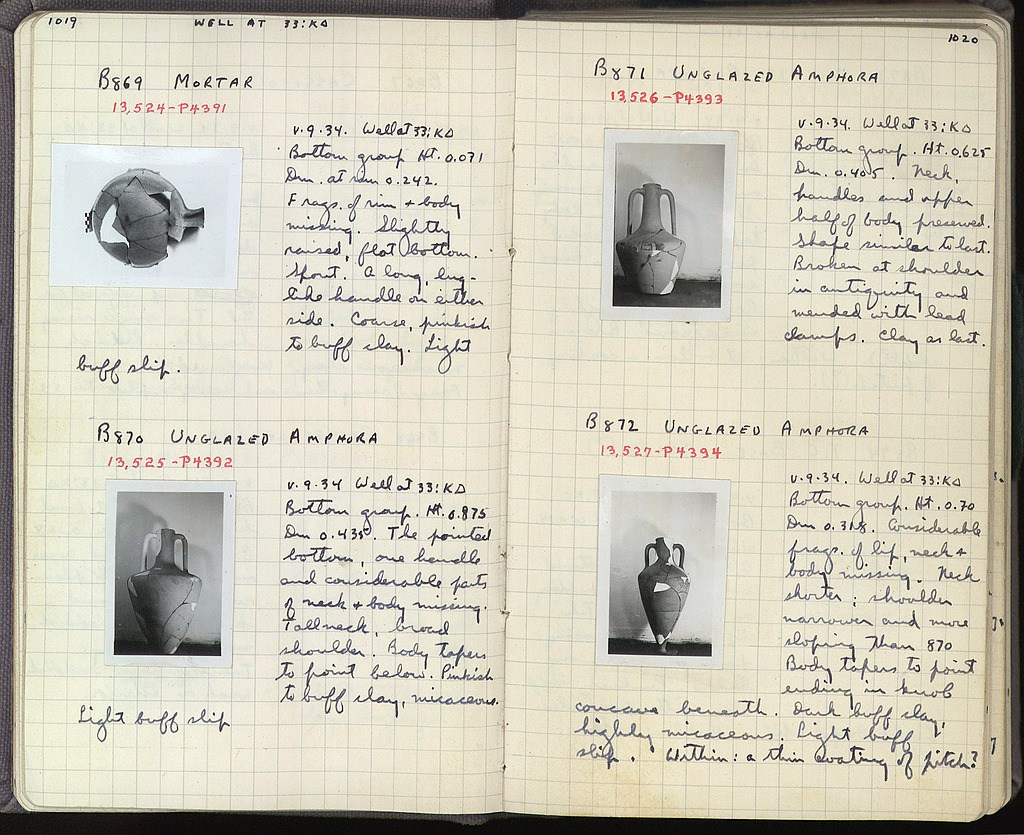 1019
WELL AT 33:KΔ
B869 MORTAR
13,524-P4391
v.9.34. Well at 33:KΔ
Bottom group Ht. 0.071
Dm. at rim 0.242.
Frags. of rim + body
missing. Slightly
raised, flat bottom.
Spout. A long, lug-
like handle on either
side. Coarse, pinkish
to buff clay. Light
buff slip.
B870 UNGLAZED AMPHORA
13,525-P4392
v.9.34 Well at 33:KΔ
Bottom group. Ht. 0.875
Dm 0.435. The pointed
bottom, one handle
and considerable parts
of neck + body missing.
Tall neck, broad
shoulder. Body tapers
to point below. Pinkish
to buff clay, micaceous.
Light buff slip
1020
B871 UNGLAZED AMPHORA
13,526-P4393
v.9.34. Well at 33:KΔ
Bottom group. Ht. 0.625
Dm. 0.405. Neck,
handles and upper
half of body preserved.
Shape similar to last.
Broken at shoulder
in antiquity and
mended with lead
clamps. Clay as last.
B872 UNGLAZED AMPHORA
13,527-P4394
v.9.34. Well at 33:KΔ
Bottom group. Ht. 0.70
Dm 0.318. Considerable
frags. of lip, neck +
body missing. Neck
shorter; shoulder
narrower and more
sloping than 870
Body tapers to point
ending in knob
concave beneath. Dark buff clay,
highly micaceous. Light buff
slip. Within: a thin coating of pitch?